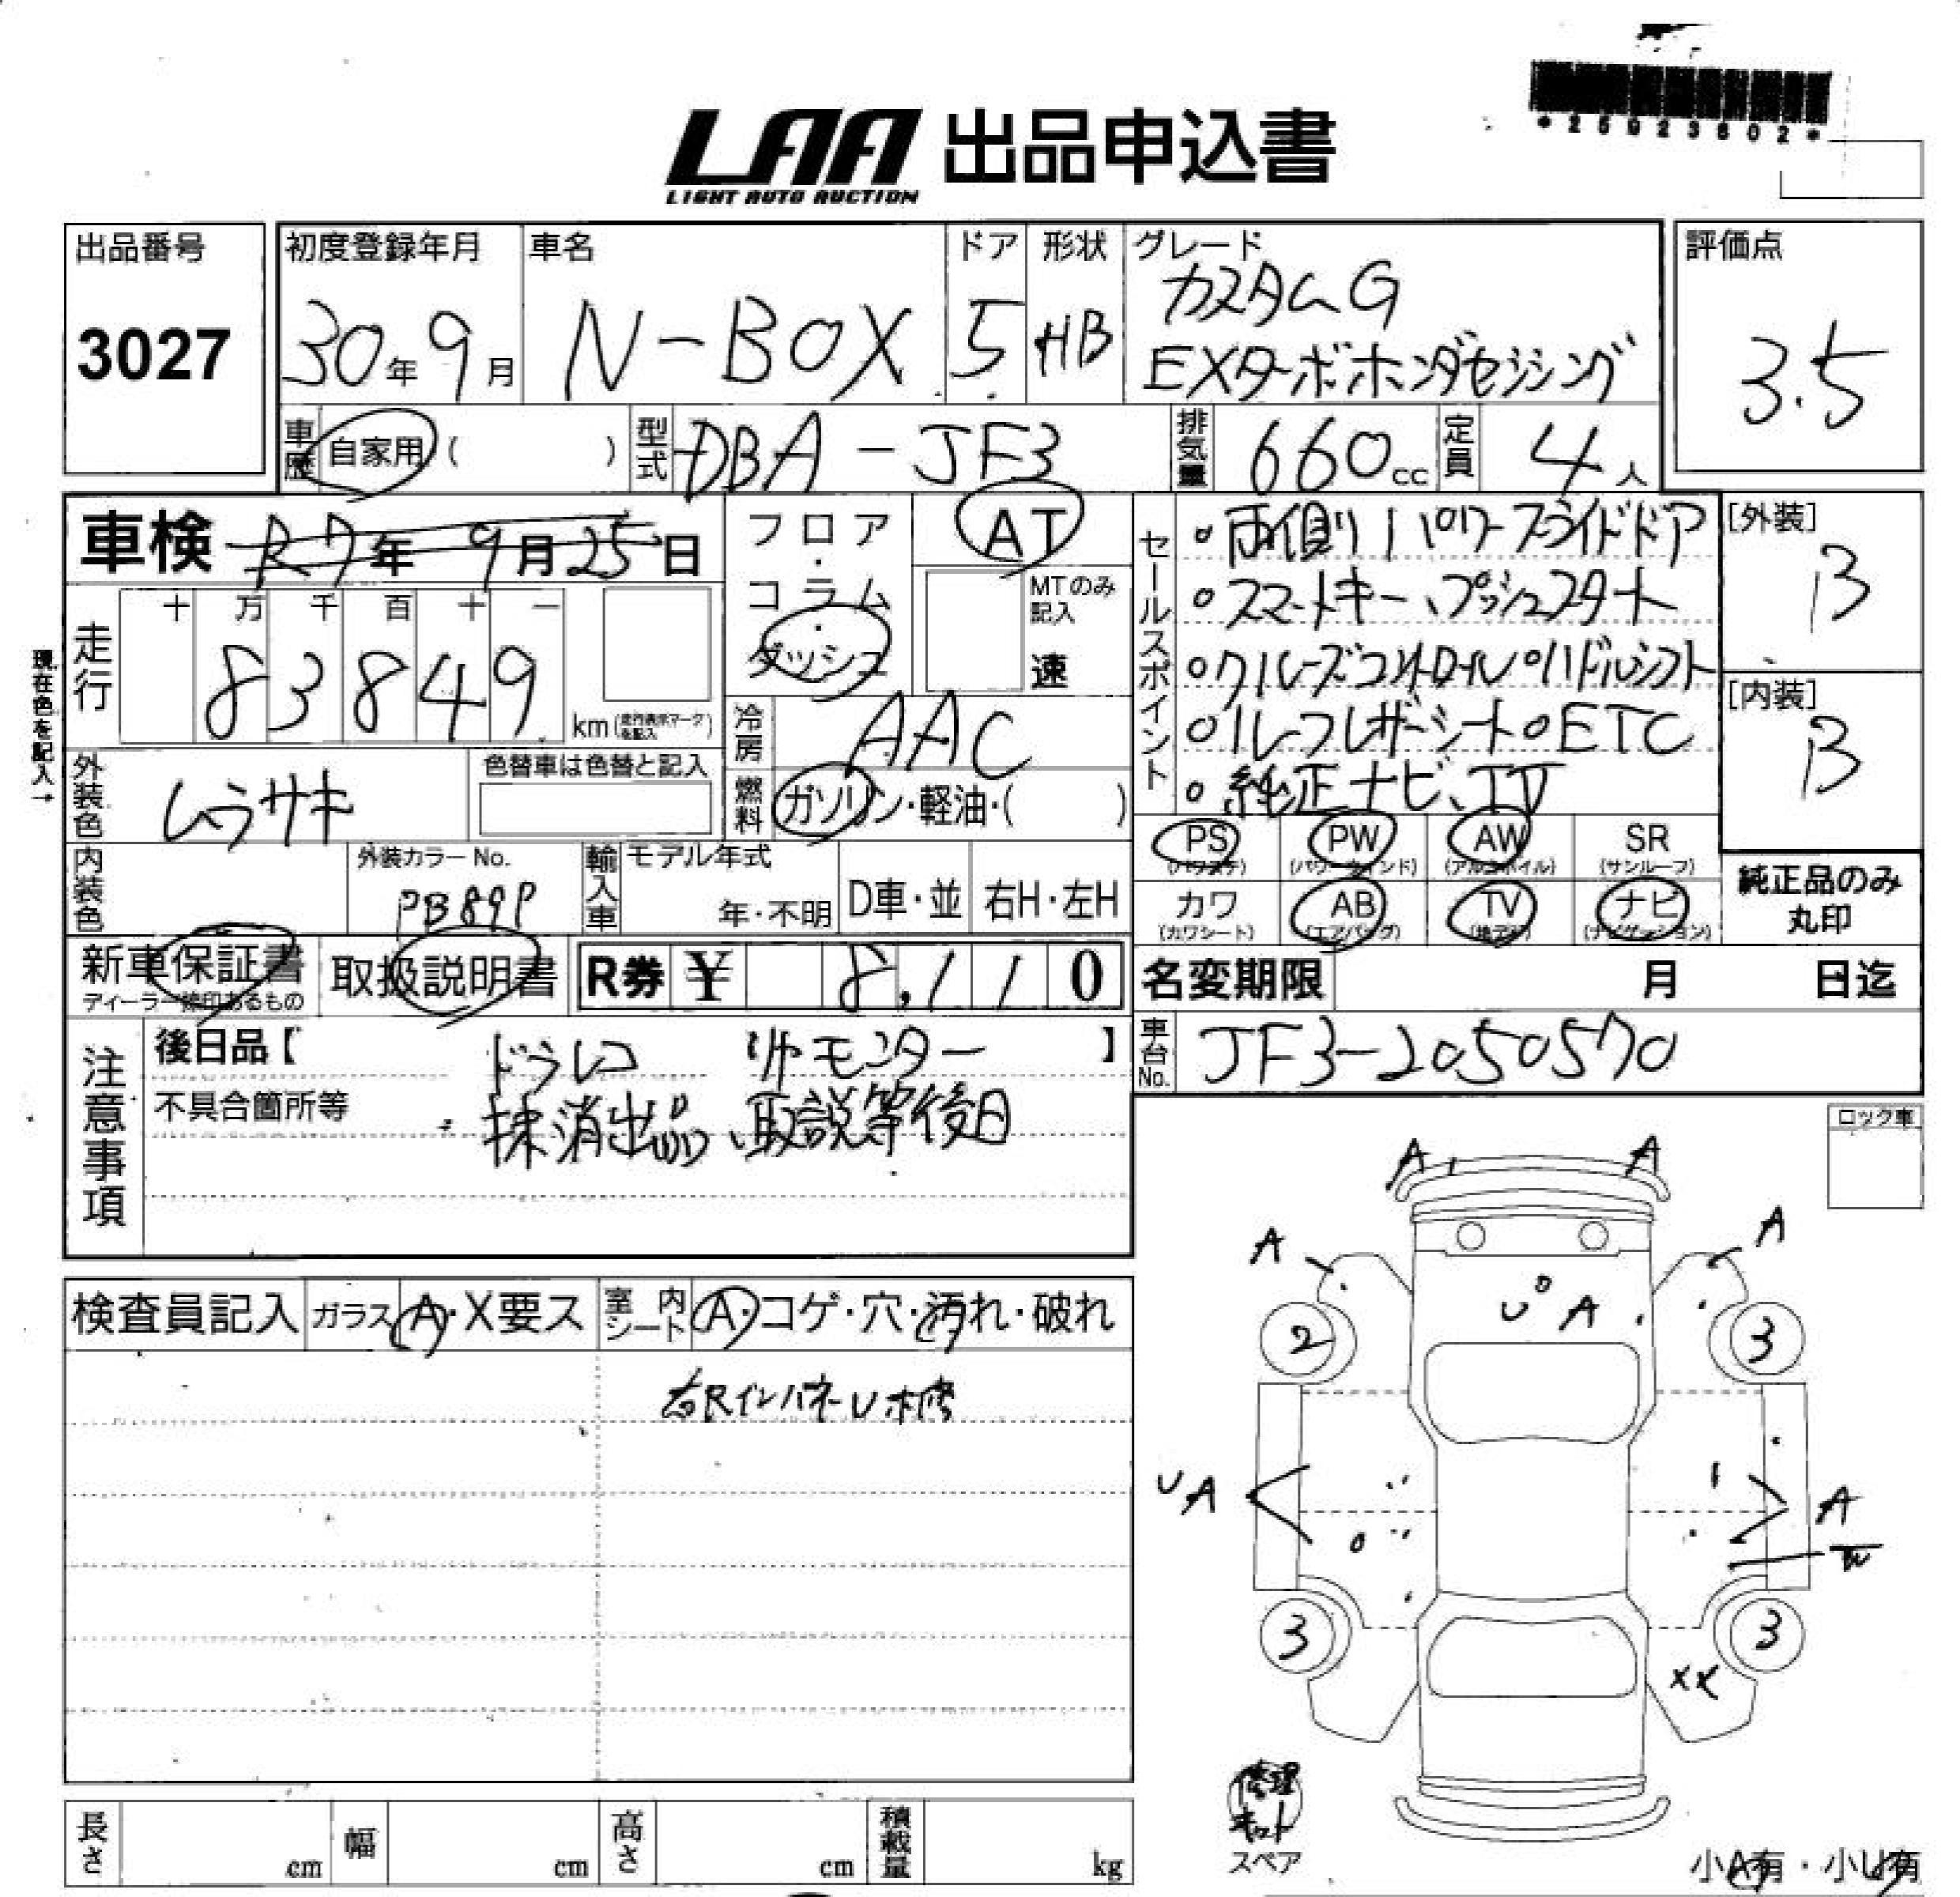 *25923602*
LAA 出品申込書
LIGHT AUTO AUCTION
出品番号
3027
初度登録年月
30年9月
車名
N-BOX
ドア
5
形状
HB
グレード
カスタムG
EXターボホンダセンシング
評価点
3.5
車歴 自家用 ( )
型式 DBA-JF3
排気量 660cc
定員 4人
車検 R7年9月25日
フロア・コラム・ダッシュ
AT
MTのみ記入
速
走行
十 万 千 百 十 一
83849
km (走行表示マークを記入)
現在色を記入→
冷房 AAC
外装色 ムラサキ
色替車は色替と記入
燃料 ガソリン・軽油・( )
内装色
外装カラーNo.
PB89P
輸入車
モデル年式
年・不明
D車・並
右H・左H
セールスポイント
・両側パワースライドドア
・スマートキー、プッシュスタート
・クルーズコントロール・パドルシフト
・ハーフレザーシート・ETC
・純正ナビ、TV
[外装]
B
[内装]
B
PS (パワステ)
PW (パワーウィンド)
AW (アルミホイル)
SR (サンルーフ)
カワ (カワシート)
AB (エアバッグ)
TV (地デジ)
ナビ (ナビゲーション)
純正品のみ丸印
新車保証書
ディーラー捺印あるもの
取扱説明書
R券 ¥ 8,110
名変期限 月 日迄
車台No. JF3-2050570
注意事項
後日品【 ドラレコ リヤモニター 】
不具合箇所等 抹消出品、取説等後日
ロック車
検査員記入
ガラス A・X要ス
室内シート A・コゲ・穴・汚れ・破れ
右Rインパネル補修
A A
A A
U A
2 3
UA A
W
3 3
XX
修理キット
スペア
小A有・小U有
長さ cm
幅 cm
高さ cm
積載量 kg